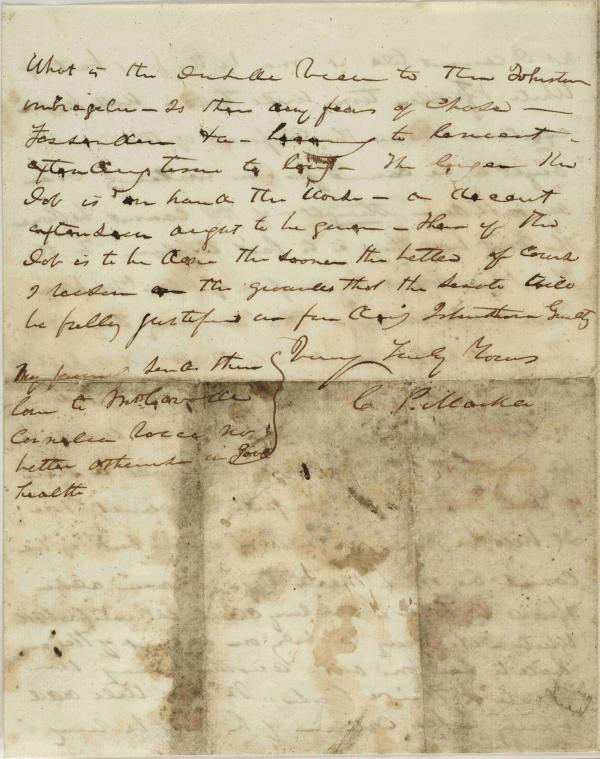 What is the inside view to the Johnston
imbroglio — Is there any fears of Chase —
Fessenden &c — to
to long — The longer the
Job is on hand the worse — a decent
extension ought to be given — then if the
Job is to be done the sooner the better of course
I reason on the grounds that the Senate will
be fully justified in finding Johnston Guilty
Very Truly Yours
C P. Markle
My family sends their
love to Mrs Covode
Cornelia
better otherwise in good
health